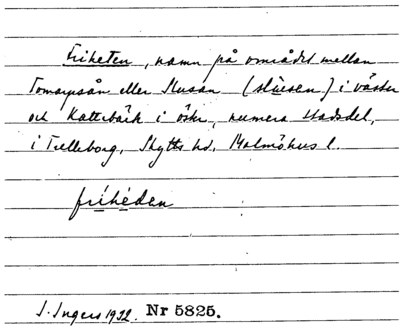 Friheten, namn på området mellan
Tomarpsån eller Slusån (slùesen) i väster
och Katterbäck i öster, numera stadsdel,
i Trelleborg, Skytts hd, Malmöhus l.
fríhèden
I. Ingers 1932. Nr 5825.